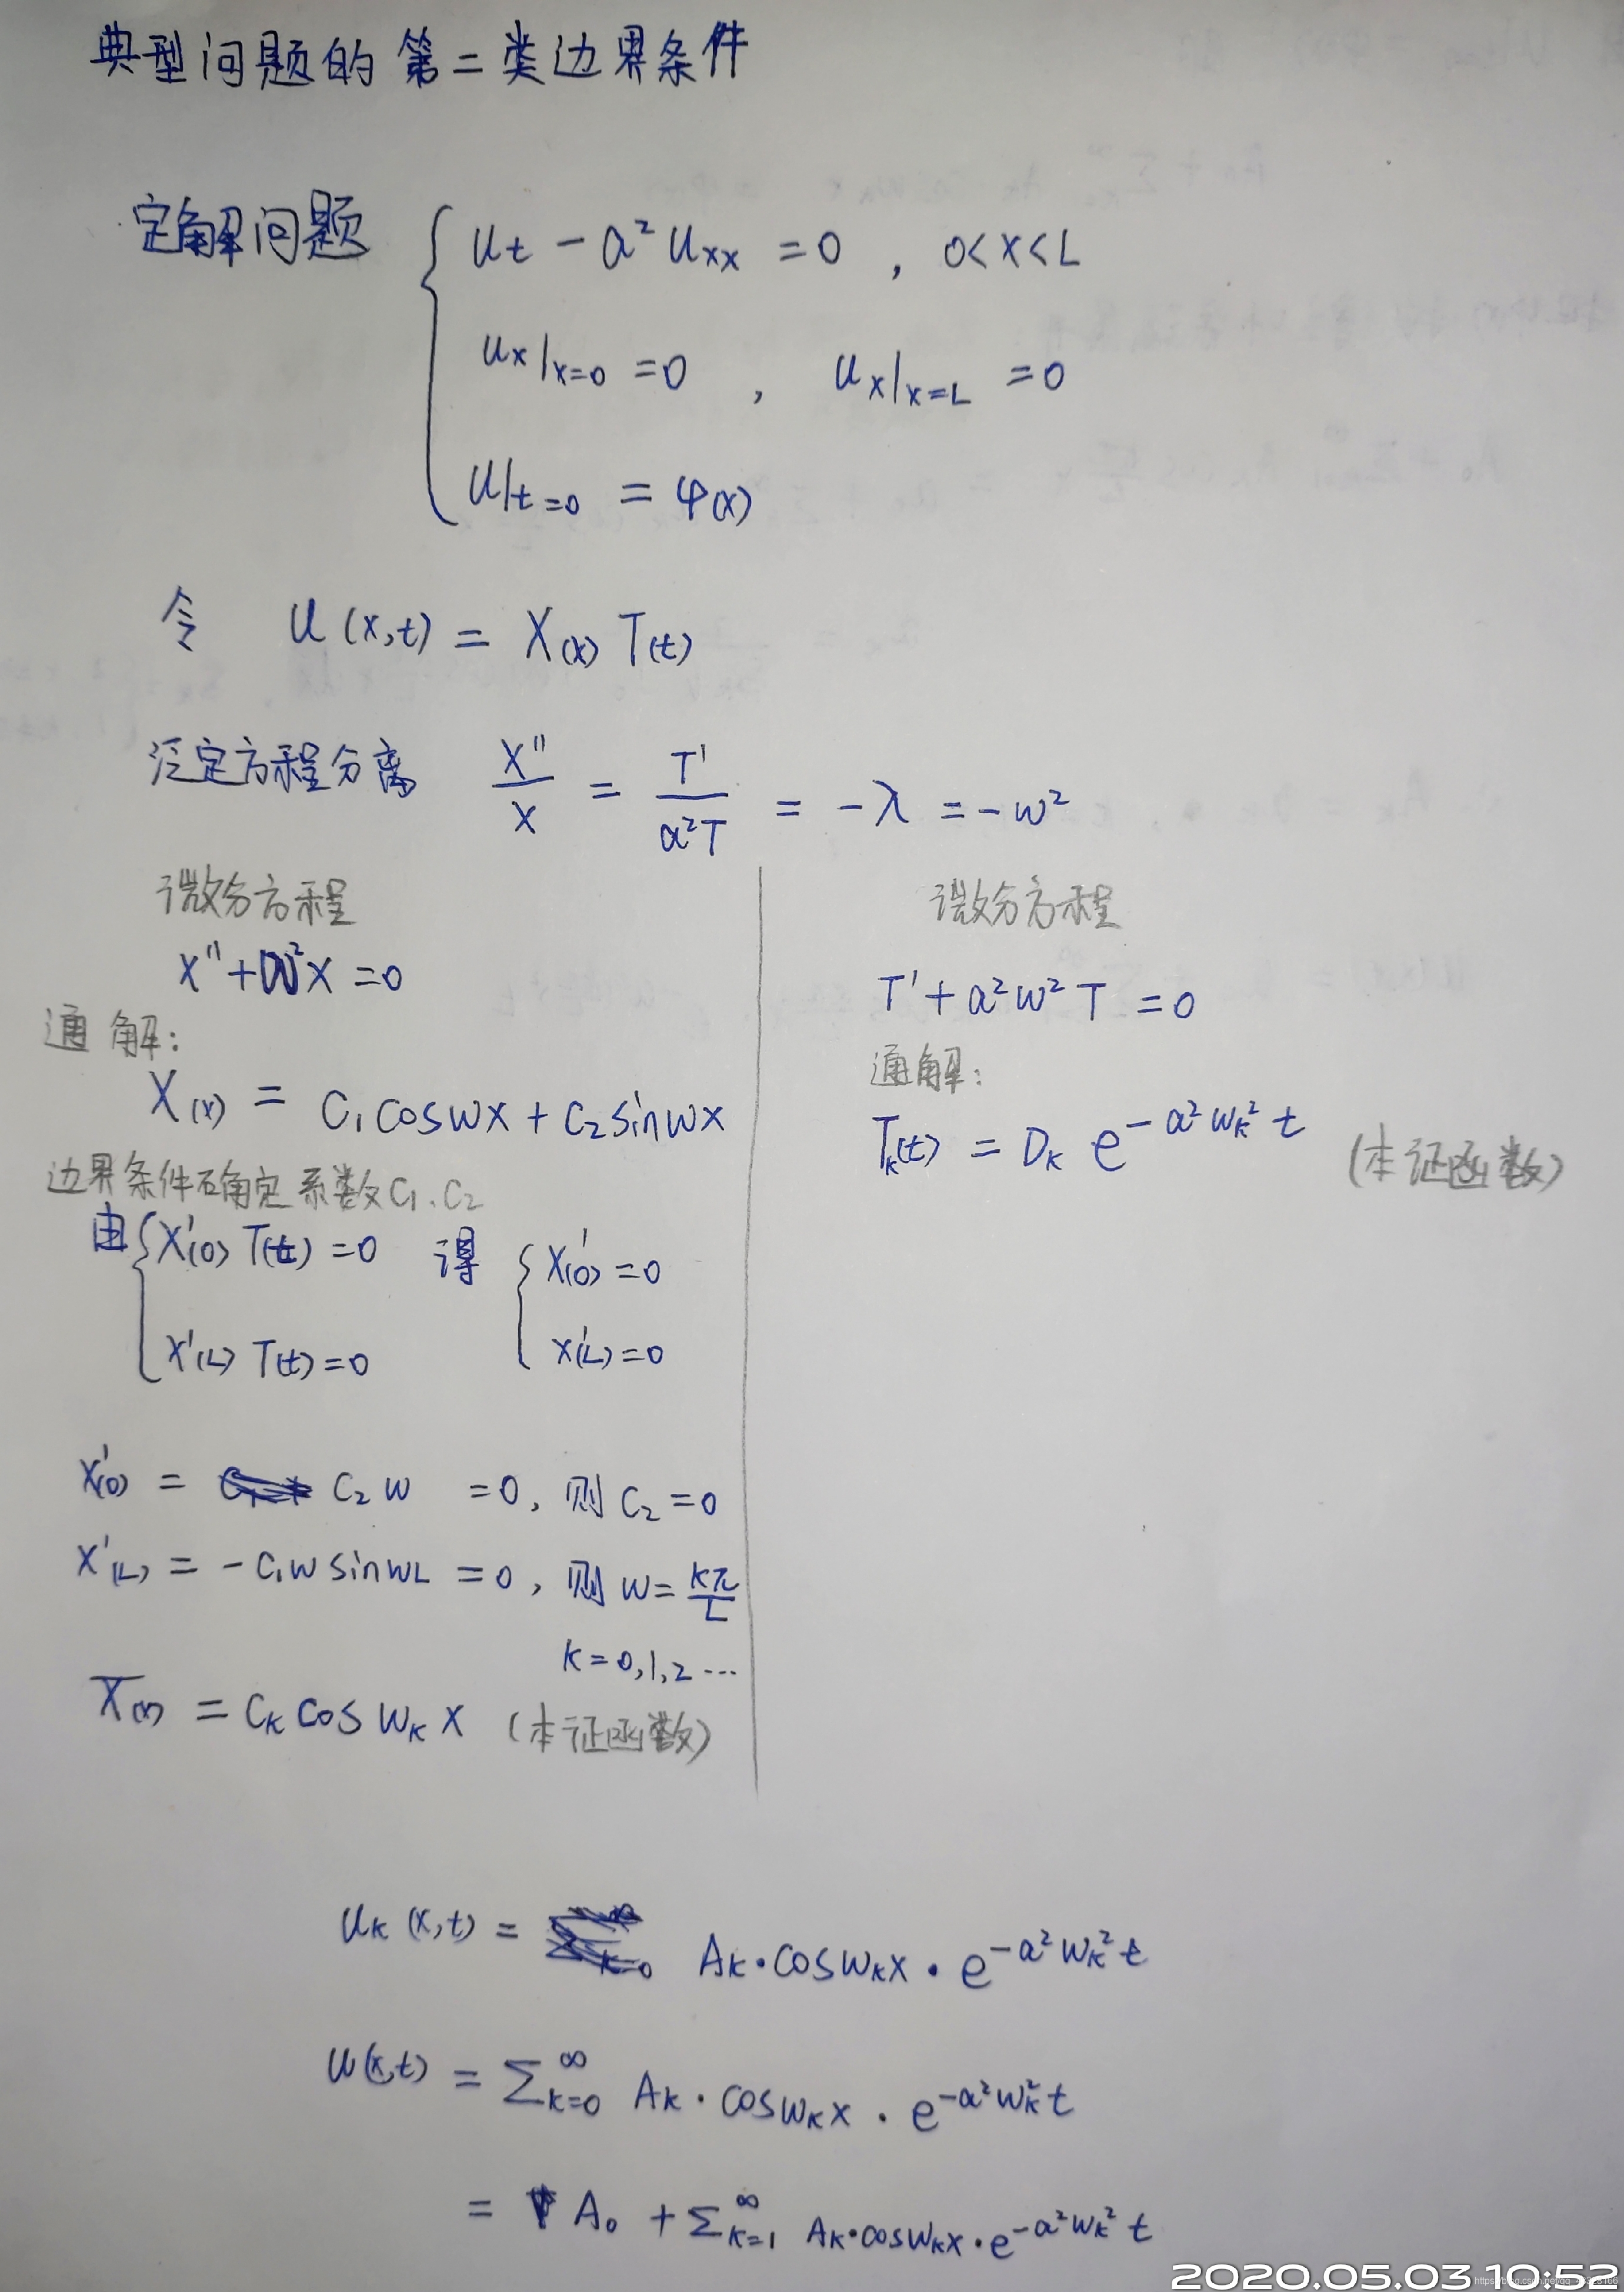 典型问题的第二类边界条件
定解问题 { u_t - a² u_xx = 0 , 0<x<L
u_x|_{x=0} = 0 , u_x|_{x=L} = 0
u|_{t=0} = φ(x)
令 u(x,t) = X(x) T(t)
泛定方程分离 X''/X = T'/(a²T) = -λ = -w²
微分方程
X''+w²X=0
通解:
X(x) = C₁coswx + C₂sinwx
边界条件确定系数C₁、C₂
由 { X'(0) T(t) = 0 得 { X'(0) = 0
X'(L) T(t) = 0 X'(L) = 0
X'(0) = C₂w = 0, 则 C₂ = 0
X'(L) = -C₁w sinwL = 0, 则 w = kπ/L
k = 0,1,2 ...
X(x) = C_k cos w_k x (本证函数)
微分方程
T' + a²w²T = 0
通解:
T_k(t) = D_k e^{-a² w_k² t} (本证函数)
u_k(x,t) = A_k·cosw_kx·e^{-a²w_k²t}
u(x,t) = Σ_{k=0}^∞ A_k·cosw_kx·e^{-a²w_k²t}
= A₀ + Σ_{k=1}^∞ A_k·cosw_kx·e^{-a²w_k²t}
2020.05.03 10:52